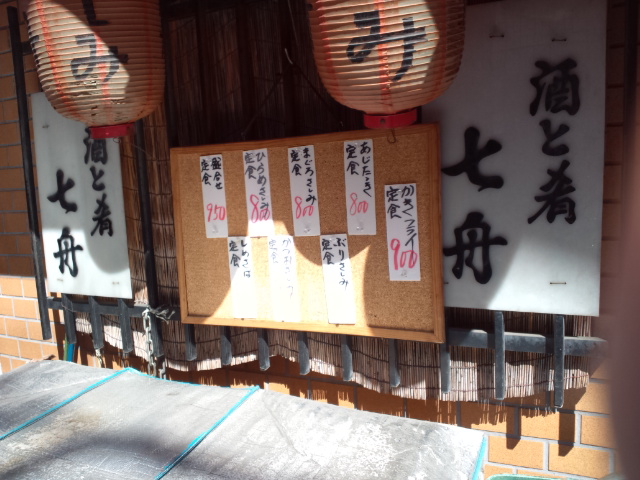 しみ
み
酒と肴
七舟
酒と肴
七舟
かきフライ
定食
900
あじたたき
定食
800
まぐろさしみ
定食
800
ひらめさしみ
定食
800
盛合せ
定食
950
ぶりさしみ
定食
かつおさしみ
定食
しめさば
定食